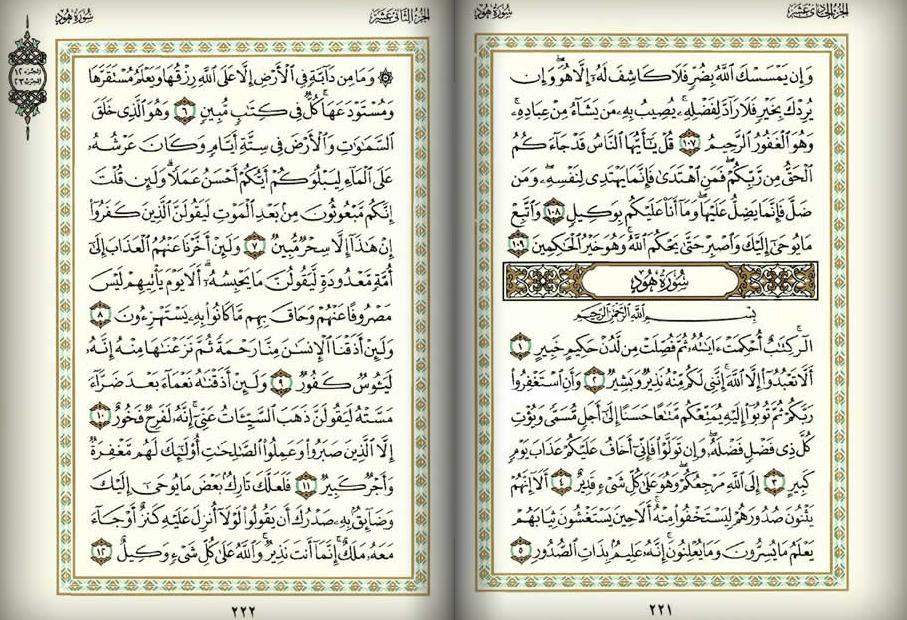 الجزء الحادى عشر
سورة هود
وَإِن يَمْسَسْكَ ٱللَّهُ بِضُرٍّ فَلَا كَاشِفَ لَهُۥٓ إِلَّا هُوَ ۖ وَإِن
يُرِدْكَ بِخَيْرٍ فَلَا رَآدَّ لِفَضْلِهِۦ ۚ يُصِيبُ بِهِۦ مَن يَشَآءُ مِنْ عِبَادِهِۦ ۚ
وَهُوَ ٱلْغَفُورُ ٱلرَّحِيمُ ١٠٧ قُلْ يَـٰٓأَيُّهَا ٱلنَّاسُ قَدْ جَآءَكُمُ
ٱلْحَقُّ مِن رَّبِّكُمْ ۖ فَمَنِ ٱهْتَدَىٰ فَإِنَّمَا يَهْتَدِى لِنَفْسِهِۦ ۖ وَمَن
ضَلَّ فَإِنَّمَا يَضِلُّ عَلَيْهَا ۖ وَمَآ أَنَا۠ عَلَيْكُم بِوَكِيلٍ ١٠٨ وَٱتَّبِعْ
مَا يُوحَىٰٓ إِلَيْكَ وَٱصْبِرْ حَتَّىٰ يَحْكُمَ ٱللَّهُ ۚ وَهُوَ خَيْرُ ٱلْحَـٰكِمِينَ ١٠٩
سورة هود
بِسْمِ ٱللَّهِ ٱلرَّحْمَـٰنِ ٱلرَّحِيمِ
الٓر ۚ كِتَـٰبٌ أُحْكِمَتْ ءَايَـٰتُهُۥ ثُمَّ فُصِّلَتْ مِن لَّدُنْ حَكِيمٍ خَبِيرٍ ١
أَلَّا تَعْبُدُوٓا۟ إِلَّا ٱللَّهَ ۚ إِنَّنِى لَكُم مِّنْهُ نَذِيرٌ وَبَشِيرٌ ٢ وَأَنِ ٱسْتَغْفِرُوا۟
رَبَّكُمْ ثُمَّ تُوبُوٓا۟ إِلَيْهِ يُمَتِّعْكُم مَّتَـٰعًا حَسَنًا إِلَىٰٓ أَجَلٍ مُّسَمًّى وَيُؤْتِ
كُلَّ ذِى فَضْلٍ فَضْلَهُۥ ۖ وَإِن تَوَلَّوْا۟ فَإِنِّىٓ أَخَافُ عَلَيْكُمْ عَذَابَ يَوْمٍ
كَبِيرٍ ٣ إِلَى ٱللَّهِ مَرْجِعُكُمْ ۖ وَهُوَ عَلَىٰ كُلِّ شَىْءٍ قَدِيرٌ ٤ أَلَآ إِنَّهُمْ
يَثْنُونَ صُدُورَهُمْ لِيَسْتَخْفُوا۟ مِنْهُ ۚ أَلَا حِينَ يَسْتَغْشُونَ ثِيَابَهُمْ
يَعْلَمُ مَا يُسِرُّونَ وَمَا يُعْلِنُونَ ۚ إِنَّهُۥ عَلِيمٌۢ بِذَاتِ ٱلصُّدُورِ ٥
٢٢١
الجزء الثانى عشر
سورة هود
الجزء ١٢
الحزب ٢٣
۞ وَمَا مِن دَآبَّةٍ فِى ٱلْأَرْضِ إِلَّا عَلَى ٱللَّهِ رِزْقُهَا وَيَعْلَمُ مُسْتَقَرَّهَا
وَمُسْتَوْدَعَهَا ۚ كُلٌّ فِى كِتَـٰبٍ مُّبِينٍ ٦ وَهُوَ ٱلَّذِى خَلَقَ
ٱلسَّمَـٰوَٰتِ وَٱلْأَرْضَ فِى سِتَّةِ أَيَّامٍ وَكَانَ عَرْشُهُۥ
عَلَى ٱلْمَآءِ لِيَبْلُوَكُمْ أَيُّكُمْ أَحْسَنُ عَمَلًا ۗ وَلَئِن قُلْتَ
إِنَّكُم مَّبْعُوثُونَ مِنۢ بَعْدِ ٱلْمَوْتِ لَيَقُولَنَّ ٱلَّذِينَ كَفَرُوٓا۟
إِنْ هَـٰذَآ إِلَّا سِحْرٌ مُّبِينٌ ٧ وَلَئِنْ أَخَّرْنَا عَنْهُمُ ٱلْعَذَابَ إِلَىٰٓ
أُمَّةٍ مَّعْدُودَةٍ لَّيَقُولُنَّ مَا يَحْبِسُهُۥٓ ۗ أَلَا يَوْمَ يَأْتِيهِمْ لَيْسَ
مَصْرُوفًا عَنْهُمْ وَحَاقَ بِهِم مَّا كَانُوا۟ بِهِۦ يَسْتَهْزِءُونَ ٨
وَلَئِنْ أَذَقْنَا ٱلْإِنسَـٰنَ مِنَّا رَحْمَةً ثُمَّ نَزَعْنَـٰهَا مِنْهُ إِنَّهُۥ
لَيَـُٔوسٌ كَفُورٌ ٩ وَلَئِنْ أَذَقْنَـٰهُ نَعْمَآءَ بَعْدَ ضَرَّآءَ
مَسَّتْهُ لَيَقُولَنَّ ذَهَبَ ٱلسَّيِّـَٔاتُ عَنِّىٓ ۚ إِنَّهُۥ لَفَرِحٌ فَخُورٌ ١٠
إِلَّا ٱلَّذِينَ صَبَرُوا۟ وَعَمِلُوا۟ ٱلصَّـٰلِحَـٰتِ أُو۟لَـٰٓئِكَ لَهُم مَّغْفِرَةٌ
وَأَجْرٌ كَبِيرٌ ١١ فَلَعَلَّكَ تَارِكٌۢ بَعْضَ مَا يُوحَىٰٓ إِلَيْكَ
وَضَآئِقٌۢ بِهِۦ صَدْرُكَ أَن يَقُولُوا۟ لَوْلَآ أُنزِلَ عَلَيْهِ كَنزٌ أَوْ جَآءَ
مَعَهُۥ مَلَكٌ ۚ إِنَّمَآ أَنتَ نَذِيرٌ ۚ وَٱللَّهُ عَلَىٰ كُلِّ شَىْءٍ وَكِيلٌ ١٢
٢٢٢